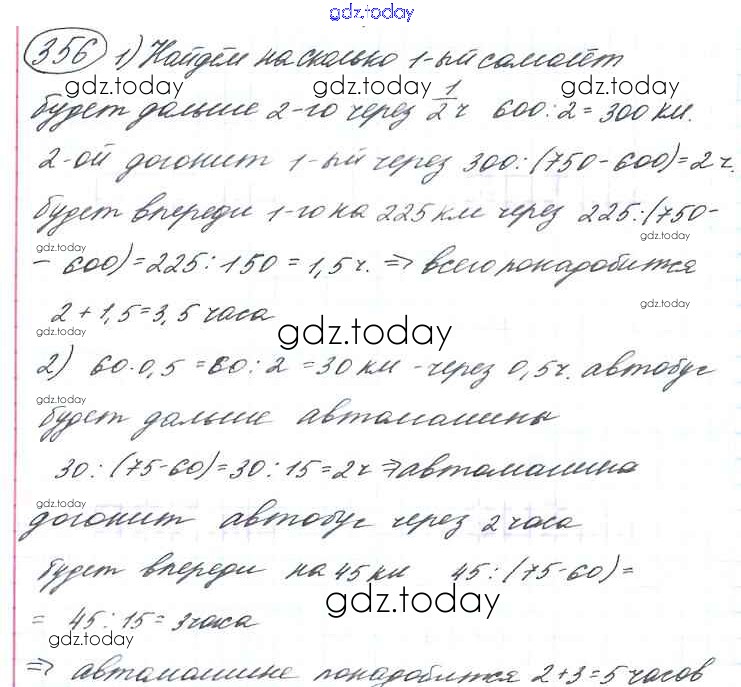 gdz.today
356 1) Найдём на сколько 1-ый самолёт
gdz.today gdz.today gdz.today
будет дальше 2-го через 1/2 ч 600:2=300 км.
2-ой догонит 1-ый через 300:(750-600)=2 ч.
будет впереди 1-го на 225 км через 225:(750-
gdz.today gdz.today
- 600)=225:150=1,5ч. => всего понадобится
gdz.today
2+1,5=3,5 часа
gdz.today
2) 60·0,5=60:2=30 км - через 0,5ч. автобус
gdz.today
будет дальше автомашины
30:(75-60)=30:15=2ч => автомашина
gdz.today
догонит автобус через 2 часа
будет впереди на 45 км 45:(75-60)=
gdz.today
= 45:15=3часа
gdz.today
=> автомашине понадобится 2+3=5 часов